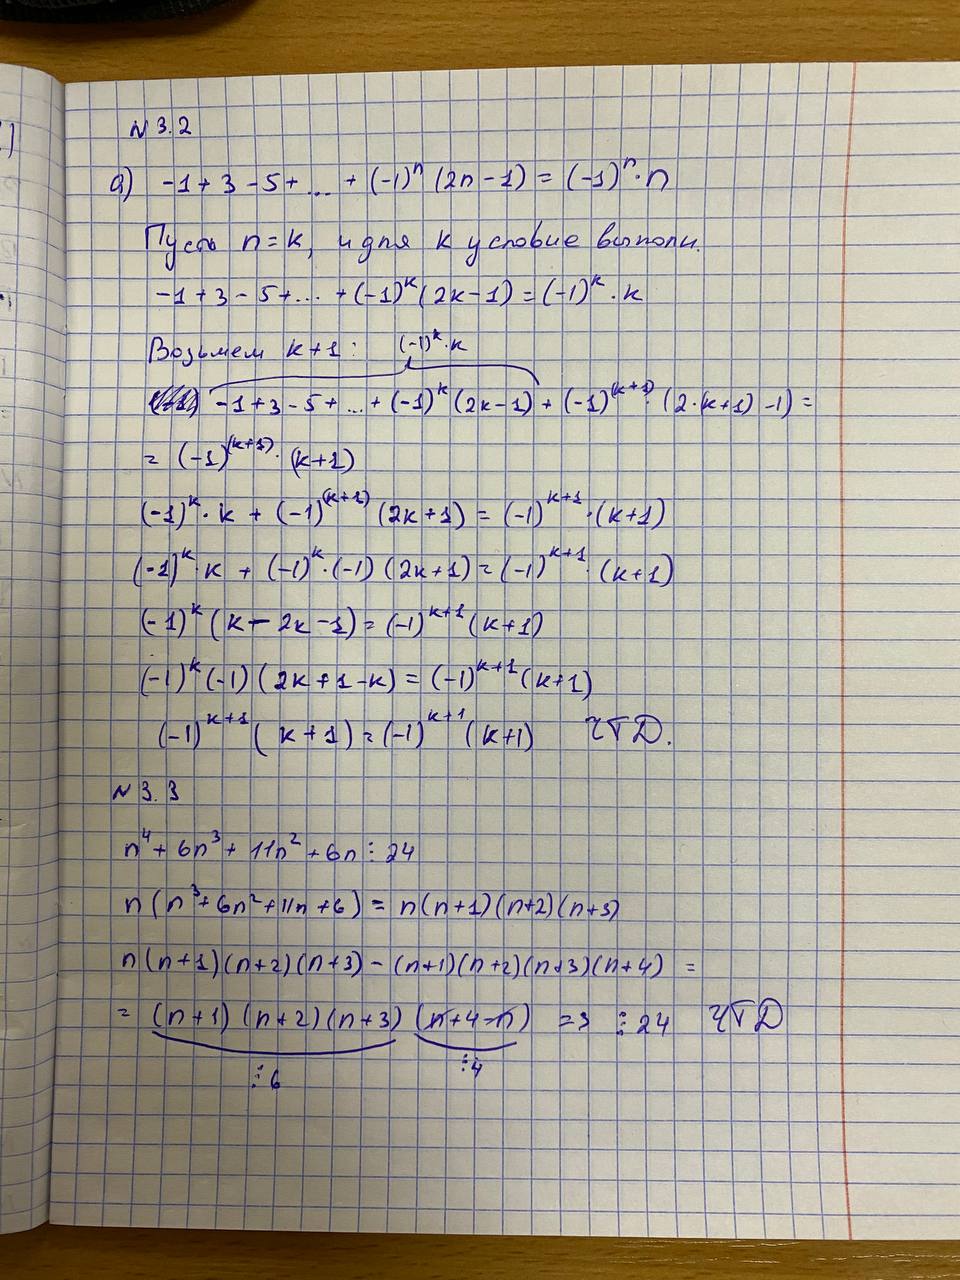 № 3.2
а) -1 + 3 - 5 + ... + (-1)^n (2n - 1) = (-1)^n · n
Пусть n = k, и для k условие выполн.
-1 + 3 - 5 + ... + (-1)^k (2k - 1) = (-1)^k · k
Возьмем k+1: (-1)^k · k
-1 + 3 - 5 + ... + (-1)^k (2k - 1) + (-1)^(k+1) · (2·(k+1) - 1) =
= (-1)^(k+1) · (k+1)
(-1)^k · k + (-1)^(k+1) (2k+1) = (-1)^k+1 · (k+1)
(-1)^k · k + (-1)^k · (-1) (2k+1) = (-1)^k+1 · (k+1)
(-1)^k (k - 2k - 1) = (-1)^k+1 (k+1)
(-1)^k (-1) (2k + 1 - k) = (-1)^k+1 (k+1)
(-1)^k+1 (k+1) = (-1)^k+1 (k+1) ЧТД.
№ 3.3
n^4 + 6n^3 + 11n^2 + 6n ⋮ 24
n (n^3 + 6n^2 + 11n + 6) = n(n+1)(n+2)(n+3)
n(n+1)(n+2)(n+3) - (n+1)(n+2)(n+3)(n+4) =
= (n+1)(n+2)(n+3)(n+4-n) => ⋮ 24 ЧТД
⋮ 6 ⋮ 4